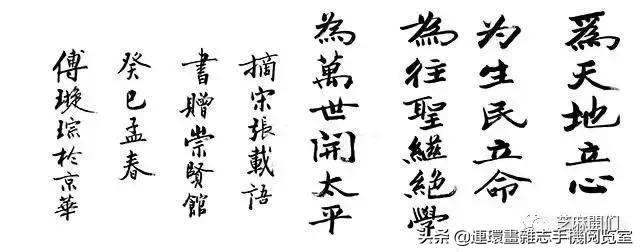 爲天地立心
为生民立命
為往聖繼絕學
為萬世開太平
摘宋張載語
書贈崇賢館
癸巳孟春
傅璇琮於京華
芝麻開们
头条 @連環畫雜志手機阅览室